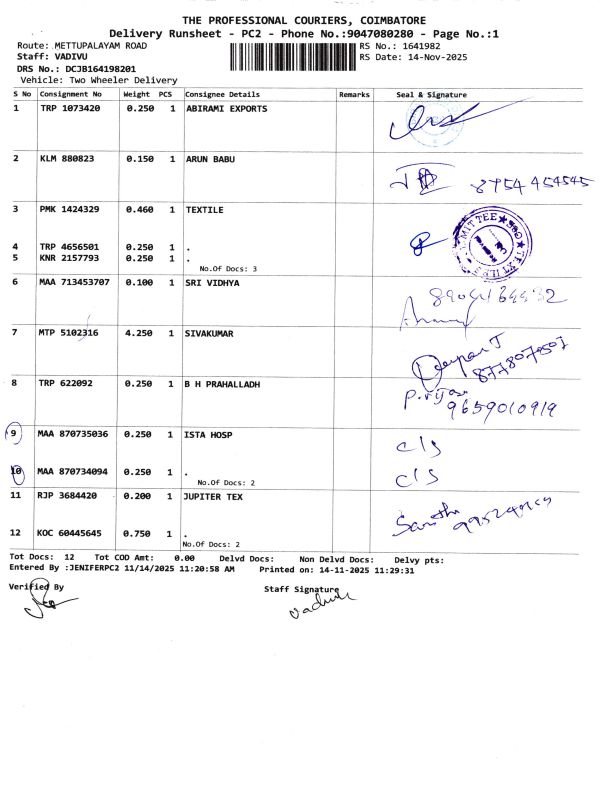 THE PROFESSIONAL COURIERS, COIMBATORE
Delivery Runsheet - PC2 - Phone No.:9047080280 - Page No.:1
Route: METTUPALAYAM ROAD RS No.: 1641982
Staff: VADIVU RS Date: 14-Nov-2025
DRS No.: DCJB164198201
Vehicle: Two Wheeler Delivery
S No Consignment No Weight PCS Consignee Details Remarks Seal & Signature
1 TRP 1073420 0.250 1 ABIRAMI EXPORTS
2 KLM 880823 0.150 1 ARUN BABU
8754 454545
3 PMK 1424329 0.460 1 TEXTILE
4 TRP 4656501 0.250 1 .
5 KNR 2157793 0.250 1 .
No.Of Docs: 3
6 MAA 713453707 0.100 1 SRI VIDHYA
7 MTP 5102316 4.250 1 SIVAKUMAR
8 TRP 622092 0.250 1 B H PRAHALLADH
9659010919
9 MAA 870735036 0.250 1 ISTA HOSP c/s
10 MAA 870734094 0.250 1 . c/s
No.Of Docs: 2
11 RJP 3684420 0.200 1 JUPITER TEX
12 KOC 60445645 0.750 1 .
No.Of Docs: 2
Tot Docs: 12 Tot COD Amt: 0.00 Delvd Docs: Non Delvd Docs: Delvy pts:
Entered By :JENIFERPC2 11/14/2025 11:20:58 AM Printed on: 14-11-2025 11:29:31
Verified By Staff Signature
vadivu